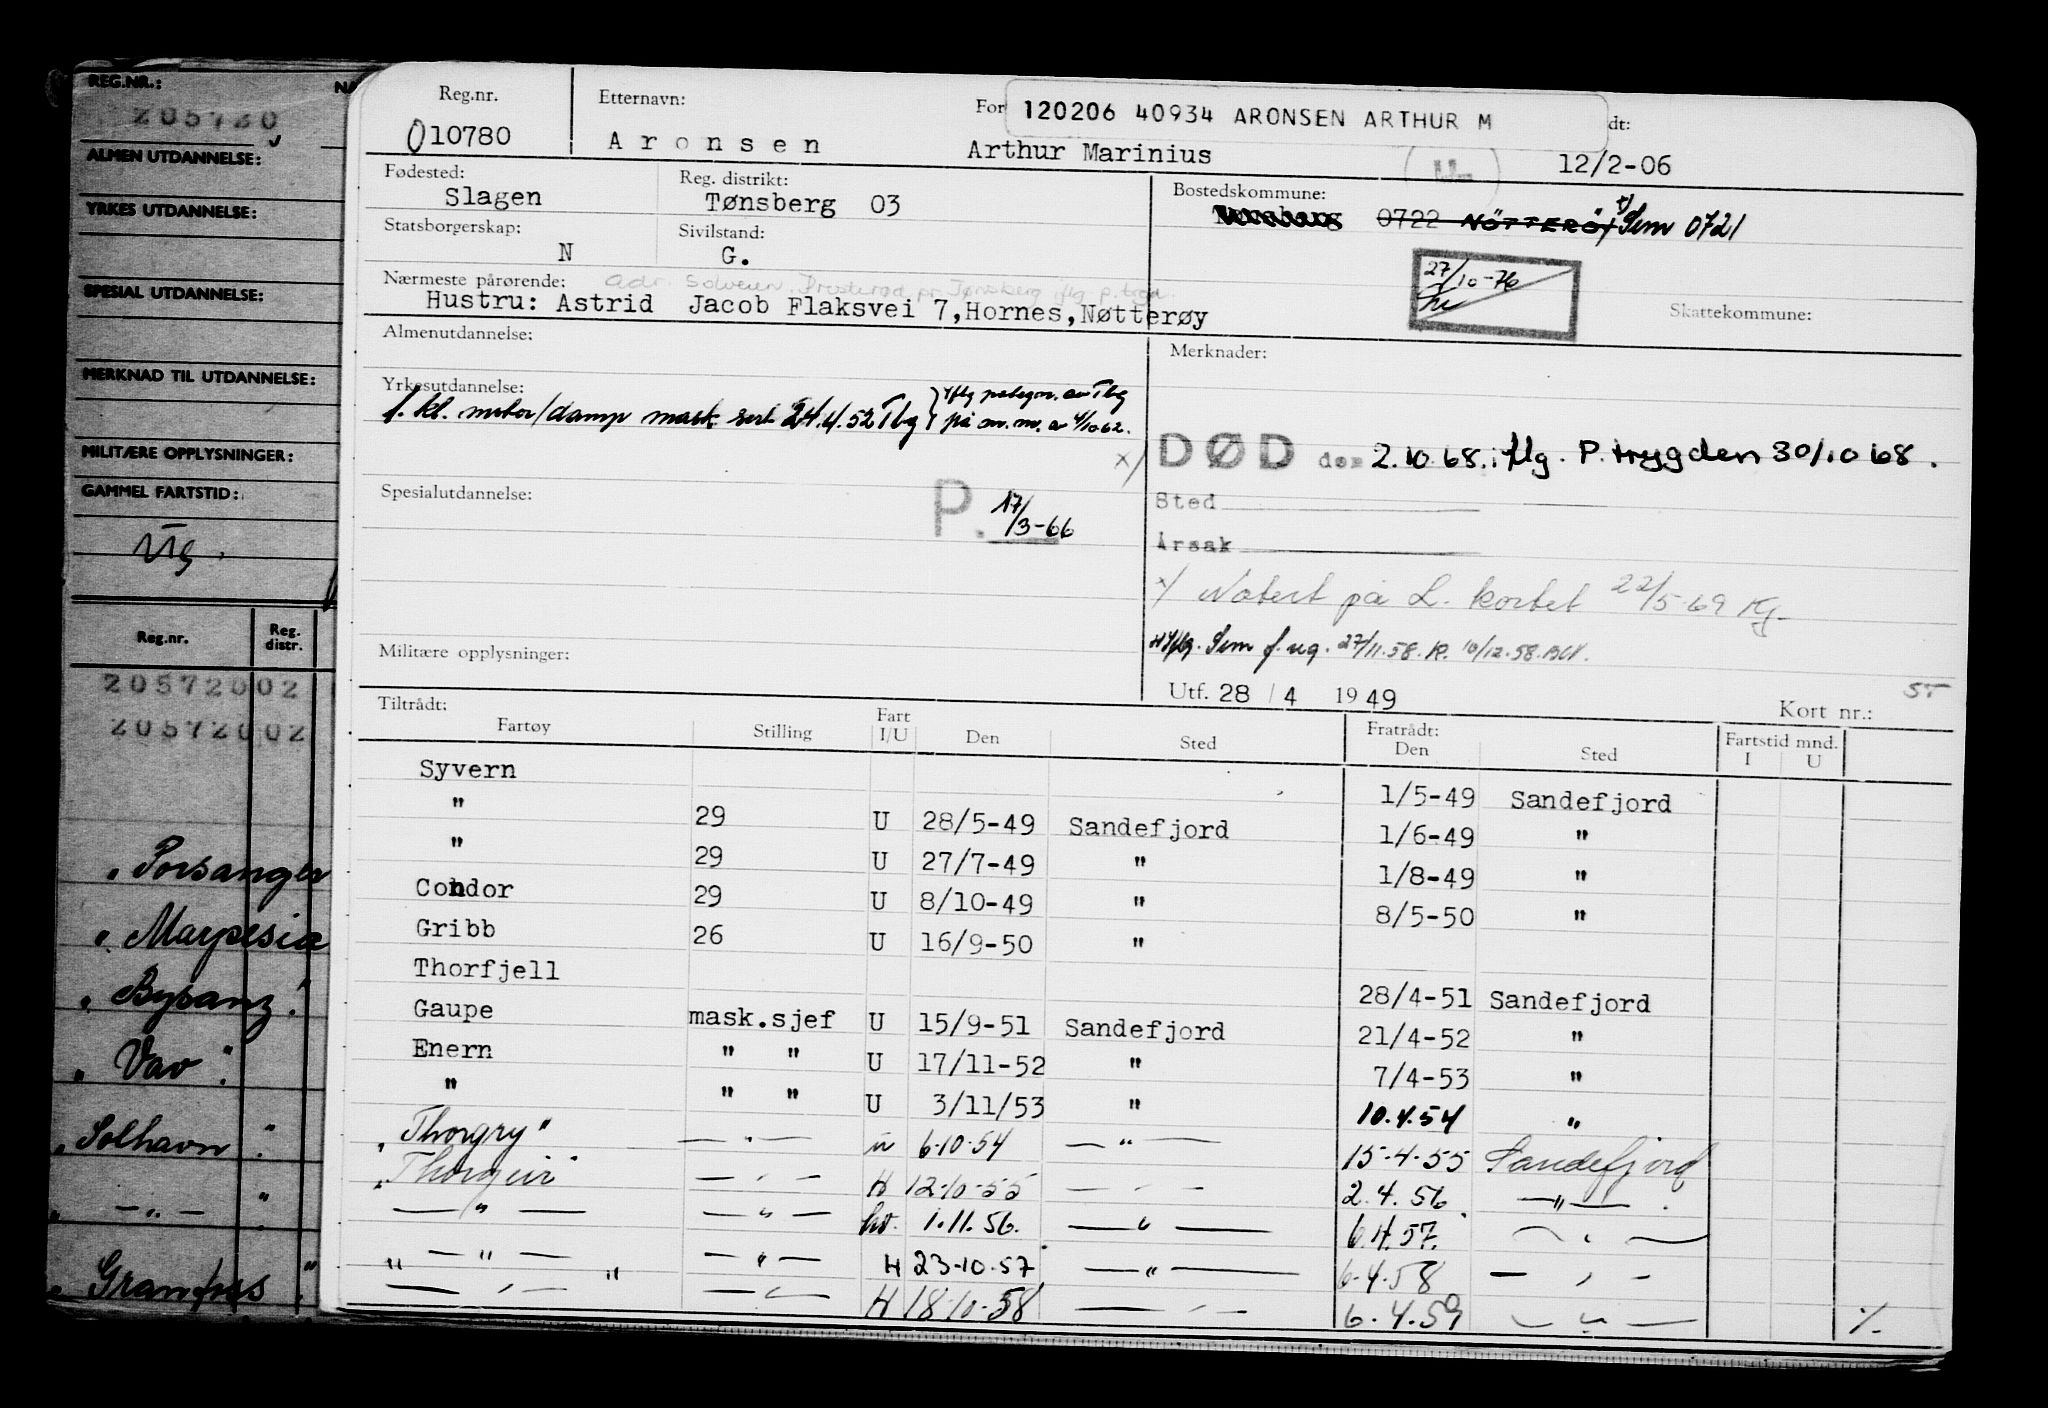 REG.NR.:
205720
ALMEN UTDANNELSE:
YRKES UTDANNELSE:
SPESIAL UTDANNELSE:
MERKNAD TIL UTDANNELSE:
MILITÆRE OPPLYSNINGER:
GAMMEL FARTSTID:
Reg.nr. Reg. distr.
20572002
20572002
"Porsanger
"Marpesia
"Bysanz"
"Vav"
"Solhavn"
" — " — "
"Granfoss"
Reg.nr. Etternavn: For 120206 40934 ARONSEN ARTHUR M dt:
010780 Aronsen Arthur Marinius 12/2-06
Fødested: Reg. distrikt: Bostedskommune:
Slagen Tønsberg 03 0722 NÖTTERÖY Sem 0721
Statsborgerskap: Sivilstand:
N G.
27/10-76
Nærmeste pårørende: adr. Solveien. Presterød pr Tønsberg iflg p.trygd.
Hustru: Astrid Jacob Flaksvei 7,Hornes,Nøtterøy
Skattekommune:
Almenutdannelse: Merknader:
Yrkesutdannelse:
1. kl. motor/damp mask sert 24.4.52 Tbg } iflg påtegn. av Tbg
på m.m. av 4/10 62.
x/ DØD den 2.10.68. iflg. P.trygden 30/10 68.
Spesialutdannelse: P. 17/3-66
Sted
Årsak
x/ Notert på L. kortet 22/5-69 Kg.
Iflg. Sem f.reg. 27/11.58. K. 10/12.58.
Militære opplysninger:
Utf. 28 / 4 1949 Kort nr.:
Tiltrådt: Fratrådt: Fartstid mnd.
Fartøy Stilling Fart I/U Den Sted Den Sted I U
Syvern 1/5-49 Sandefjord
" 29 U 28/5-49 Sandefjord 1/6-49 "
" 29 U 27/7-49 " 1/8-49 "
Condor 29 U 8/10-49 " 8/5-50 "
Gribb 26 U 16/9-50 "
Thorfjell 28/4-51 Sandefjord
Gaupe mask.sjef U 15/9-51 Sandefjord 21/4-52 "
Enern " " U 17/11-52 " 7/4-53 "
" " " U 3/11/53 " 10.4.54 "
"Thorgry" — " — u 6.10.54 — " — 15-4-55 Sandefjord
"Thorgeir" — " — H 12-10-55 — " — 2.4.56 — " —
— " — — " — hv. 1.11.56. — " — 6.4.57. — " —
" — " — " — " — H 23-10-57 — " — 6-4-58 — " —
— " — — " — H 18-10-58 — " — 6.4.59 — " — %